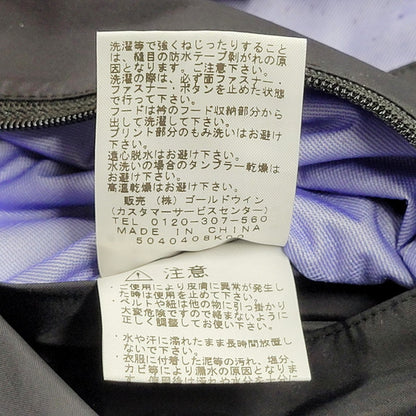 洗濯等で強くねじったりすること
は、縫目の防水テープ剥がれの原
因となります。ご注意下さい。
洗濯の際は、必ず面ファスナー、
ファスナー・ボタンを止めた状態
で行って下さい。
フードは衿のフード収納部分から
出して洗濯して下さい。
プリント部分のもみ洗いはお避け
下さい。
遠心脱水はお避け下さい。
水洗いの場合のタンブラー乾燥は
お避け下さい。
高温乾燥はお避け下さい。
販売 (株) ゴールドウイン
(カスタマーサービスセンター)
TEL 0120-307-560
MADE IN CHINA
5040408K02
注意
・ご使用により皮膚に異常が発生し
た時は使用を止めて下さい。
・ベルトや紐は他の物に引っ掛かり
大変危険ですので絡まないように
正しく調整してお使い下さい。
・水や汗に濡れたまま長時間放置し
ないで下さい。
・衣服に付着した泥等の汚れ、塩分、
カビ等により漏水の原因となりま
す。使用後は汚れや水分を十分に